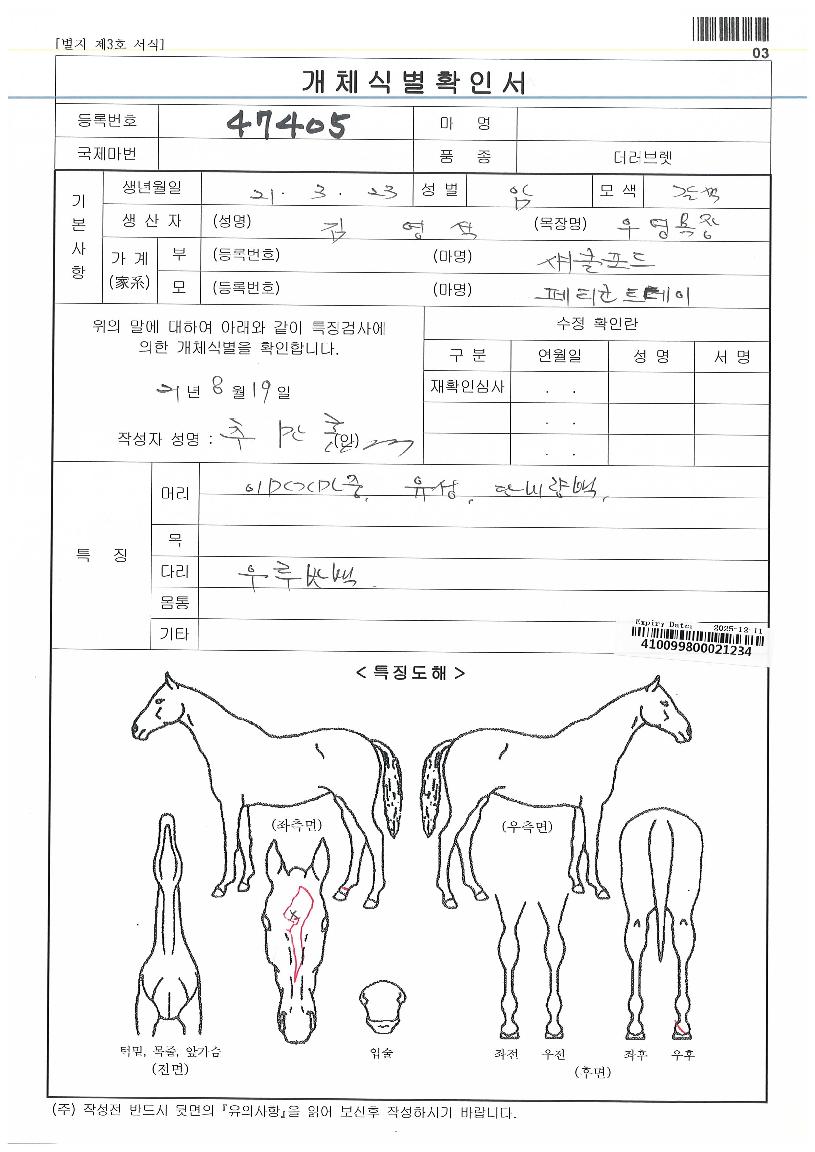 [별지 제3호 서식]
03
개체식별확인서
등록번호 47405 마 명
국제마번 품 종 더러브렛
기본사항
생년월일 21. 3. 23 성 별 암 모 색 갈색
생 산 자 (성명) 김 영 석 (목장명) 우영목장
가 계 (家系) 부 (등록번호) (마명) 섀클포드
모 (등록번호) (마명)
위의 말에 대하여 아래와 같이 특징검사에
의한 개체식별을 확인합니다.
21년 8월 19일
작성자 성명 : (인)
수정 확인란
구 분 연월일 성 명 서 명
재확인심사 . .
. .
. .
특 징
머리 유성,
목
다리
몸통
기타
Expiry Date: 2025-12-11
410099800021234
< 특징도해 >
(좌측면) (우측면)
턱밑, 목줄, 앞가슴
(전면)
입술
좌전 우전 좌후 우후
(후면)
(주) 작성전 반드시 뒷면의 『유의사항』을 읽어 보신후 작성하시기 바랍니다.